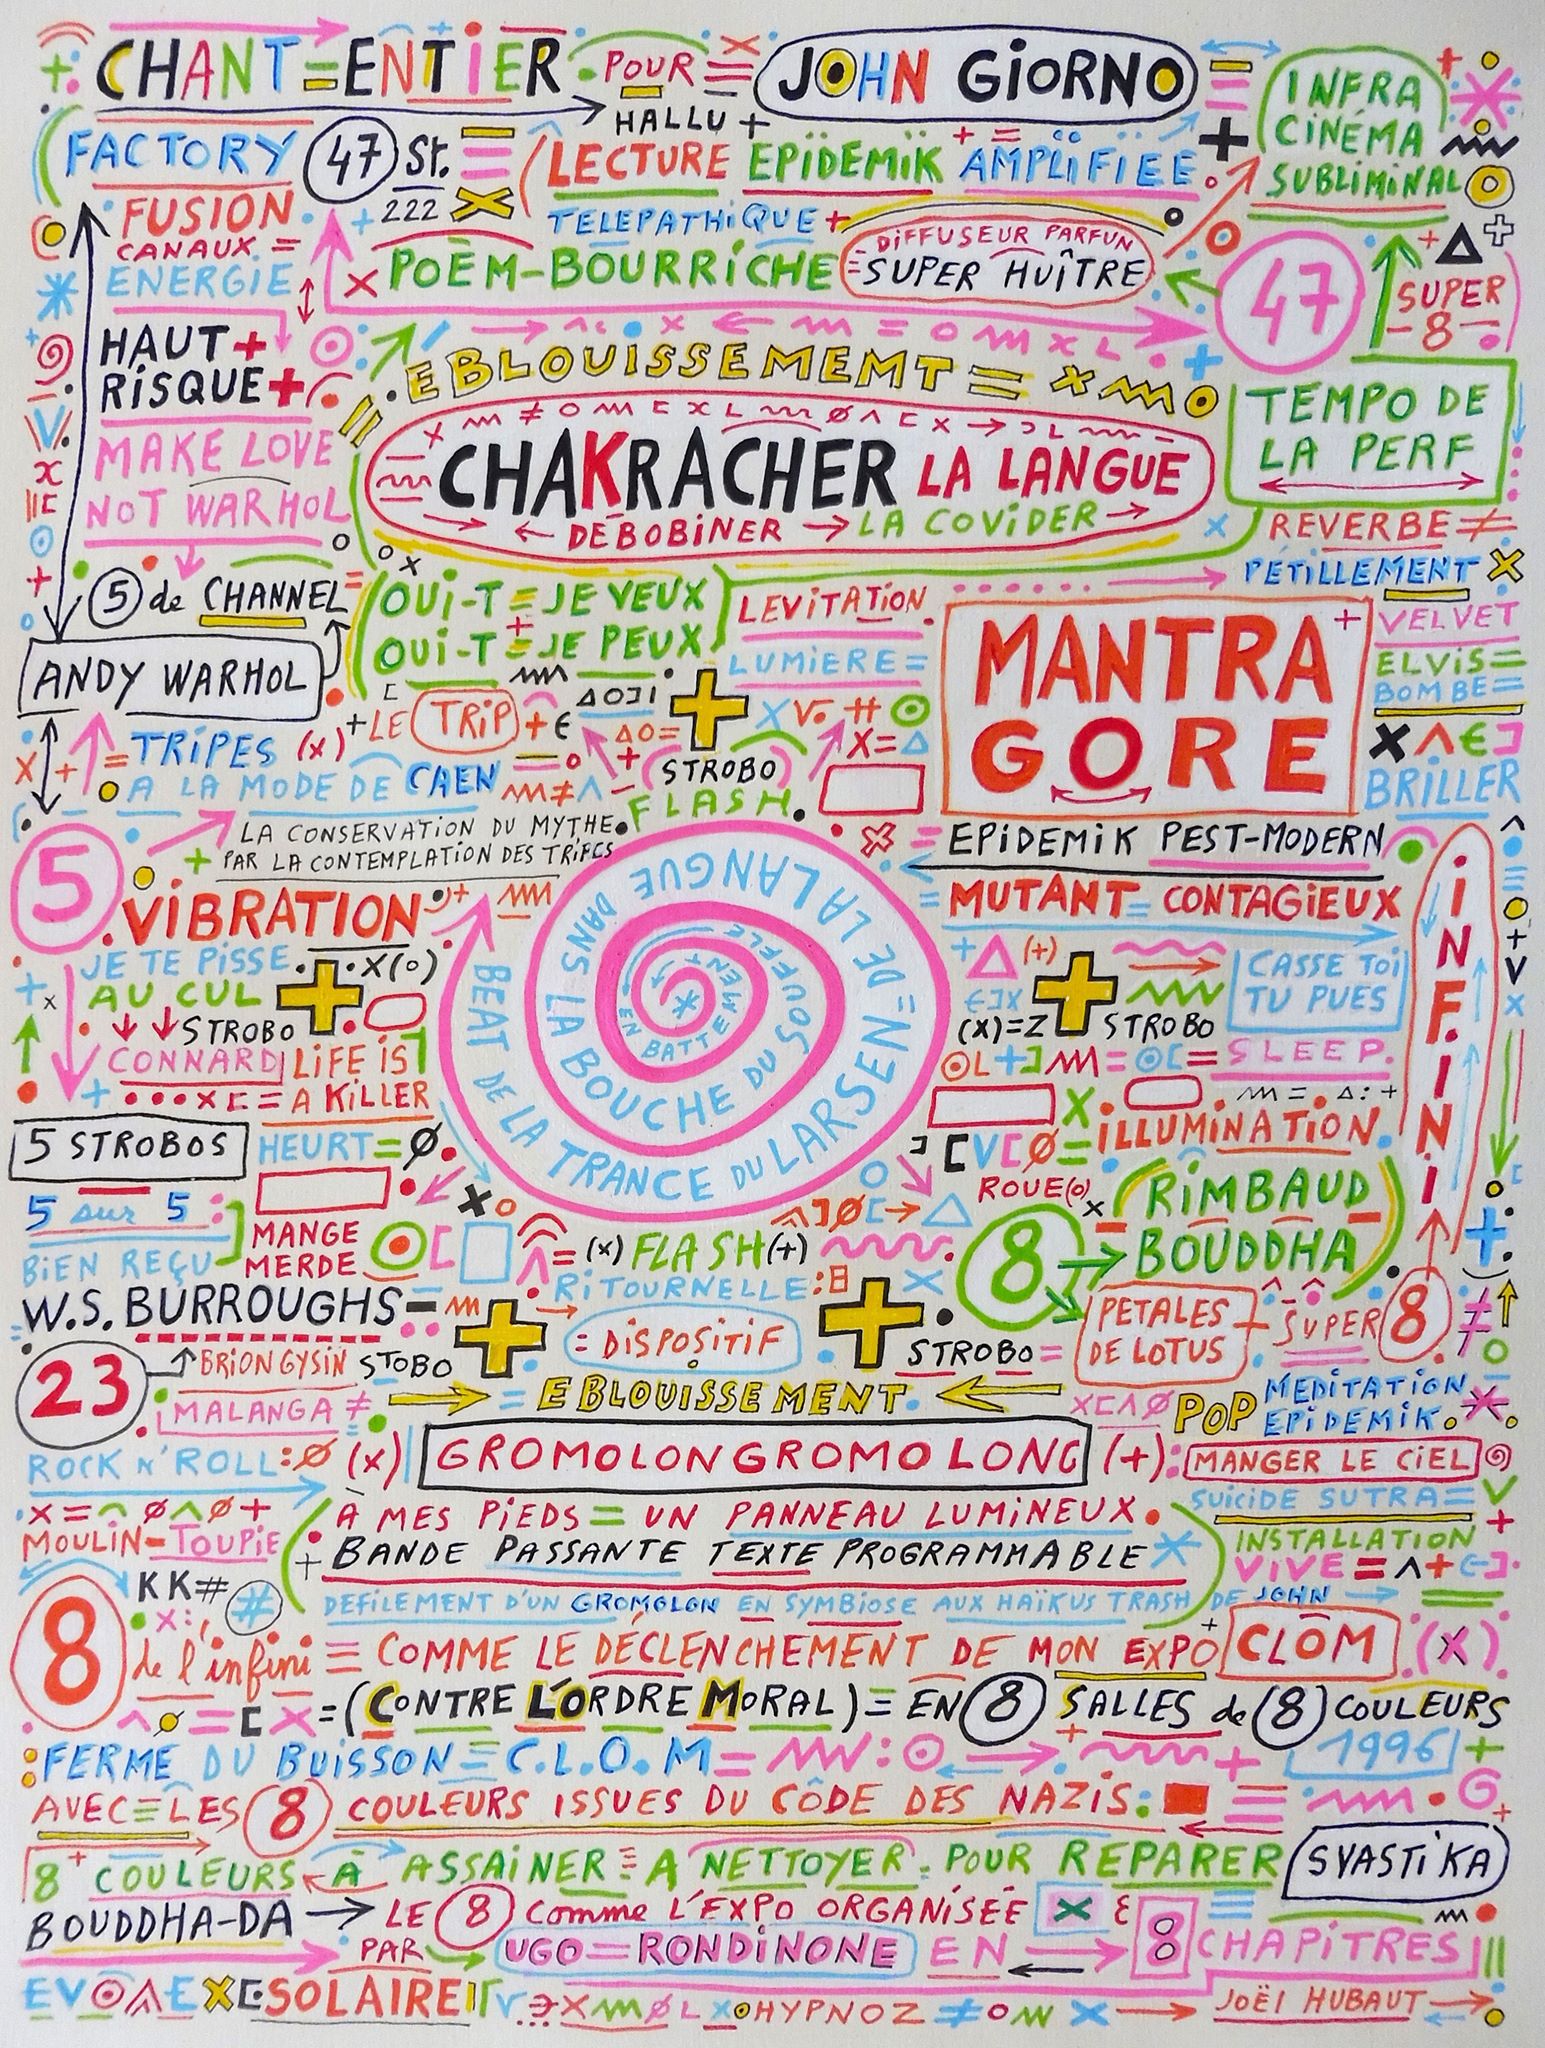 CHANT = ENTIER POUR JOHN GIORNO
HALLU +
INFRA
CINÉMA
SUBLIMINAL
FACTORY 47 St.
222
LECTURE EPIDEMIK AMPLIFIEE
FUSION
CANAUX =
ENERGIE
TELEPATHIQUE +
DIFFUSEUR PARFUN
POËM-BOURRICHE = SUPER HUÎTRE
47
SUPER
- 8 -
HAUT +
RISQUE +
EBLOUISSEMEMT =
MAKE LOVE
NOT WARHOL
CHAKRACHER LA LANGUE
← DEBOBINER → LA COVIDER →
TEMPO DE
LA PERF
REVERBE ≠
PÉTILLEMENT X
5 de CHANNEL
OUI-T = JE VEUX
OUI-T = JE PEUX
LEVITATION
LUMIERE =
MANTRA
GORE
VELVET
ELVIS =
BOMBE =
BRILLER
ANDY WARHOL
+ LE TRIP +
= TRIPES (x)
A LA MODE DE CAEN
STROBO
FLASH
LA CONSERVATION DU MYTHE
PAR LA CONTEMPLATION DES TRIPES
EPIDEMIK PEST-MODERN
5
VIBRATION
MUTANT = CONTAGIEUX
INFINI
JE TE PISSE
AU CUL
STROBO
CONNARD
LIFE IS
= A KILLER
BEAT DE LA TRANCE DU LARSEN = DE LA LANGUE DANS LA BOUCHE DU SOUFFLE EN BATTEMENT
CASSE TOI
TU PUES
(x)=Z
STROBO
SLEEP.
= ILLUMINATION
5 STROBOS
HEURT = Ø
5 sur 5
BIEN REÇU
MANGE
MERDE
ROUE (o)
RIMBAUD
8 → BOUDDHA
= (x) FLASH (+)
RITOURNELLE : 8
W.S. BURROUGHS
= DISPOSITIF
STROBO =
PETALES
DE LOTUS
SUPER 8
23
BRION GYSIN STOBO
= EBLOUISSEMENT
MALANGA ≠
POP MEDITATION
EPIDEMIK
ROCK N' ROLL : Ø (x)
GROMOLONGROMOLONG (+)
MANGER LE CIEL
SUICIDE SUTRA =
MOULIN-TOUPIE
À MES PIEDS = UN PANNEAU LUMINEUX
BANDE PASSANTE TEXTE PROGRAMMABLE
INSTALLATION
VIVE =
KK# #
DEFILEMENT D'UN GROMOLON EN SYMBIOSE AUX HAÏKUS TRASH DE JOHN
8 de l'infini = COMME LE DÉCLENCHEMENT DE MON EXPO CLOM (x)
= (CONTRE L'ORDRE MORAL) = EN 8 SALLES de (8) COULEURS
FERME DU BUISSON = C.L.O.M = 1996 +
AVEC = LES 8 COULEURS ISSUES DU CÔDE DES NAZIS
8 COULEURS À ASSAINER = A NETTOYER = POUR REPARER SVASTIKA
BOUDDHA-DA → LE 8 comme L'EXPO ORGANISÉE
PAR UGO = RONDINONE EN 8 CHAPITRES
SOLAIRE
HYPNOZ
JOËL HUBAUT